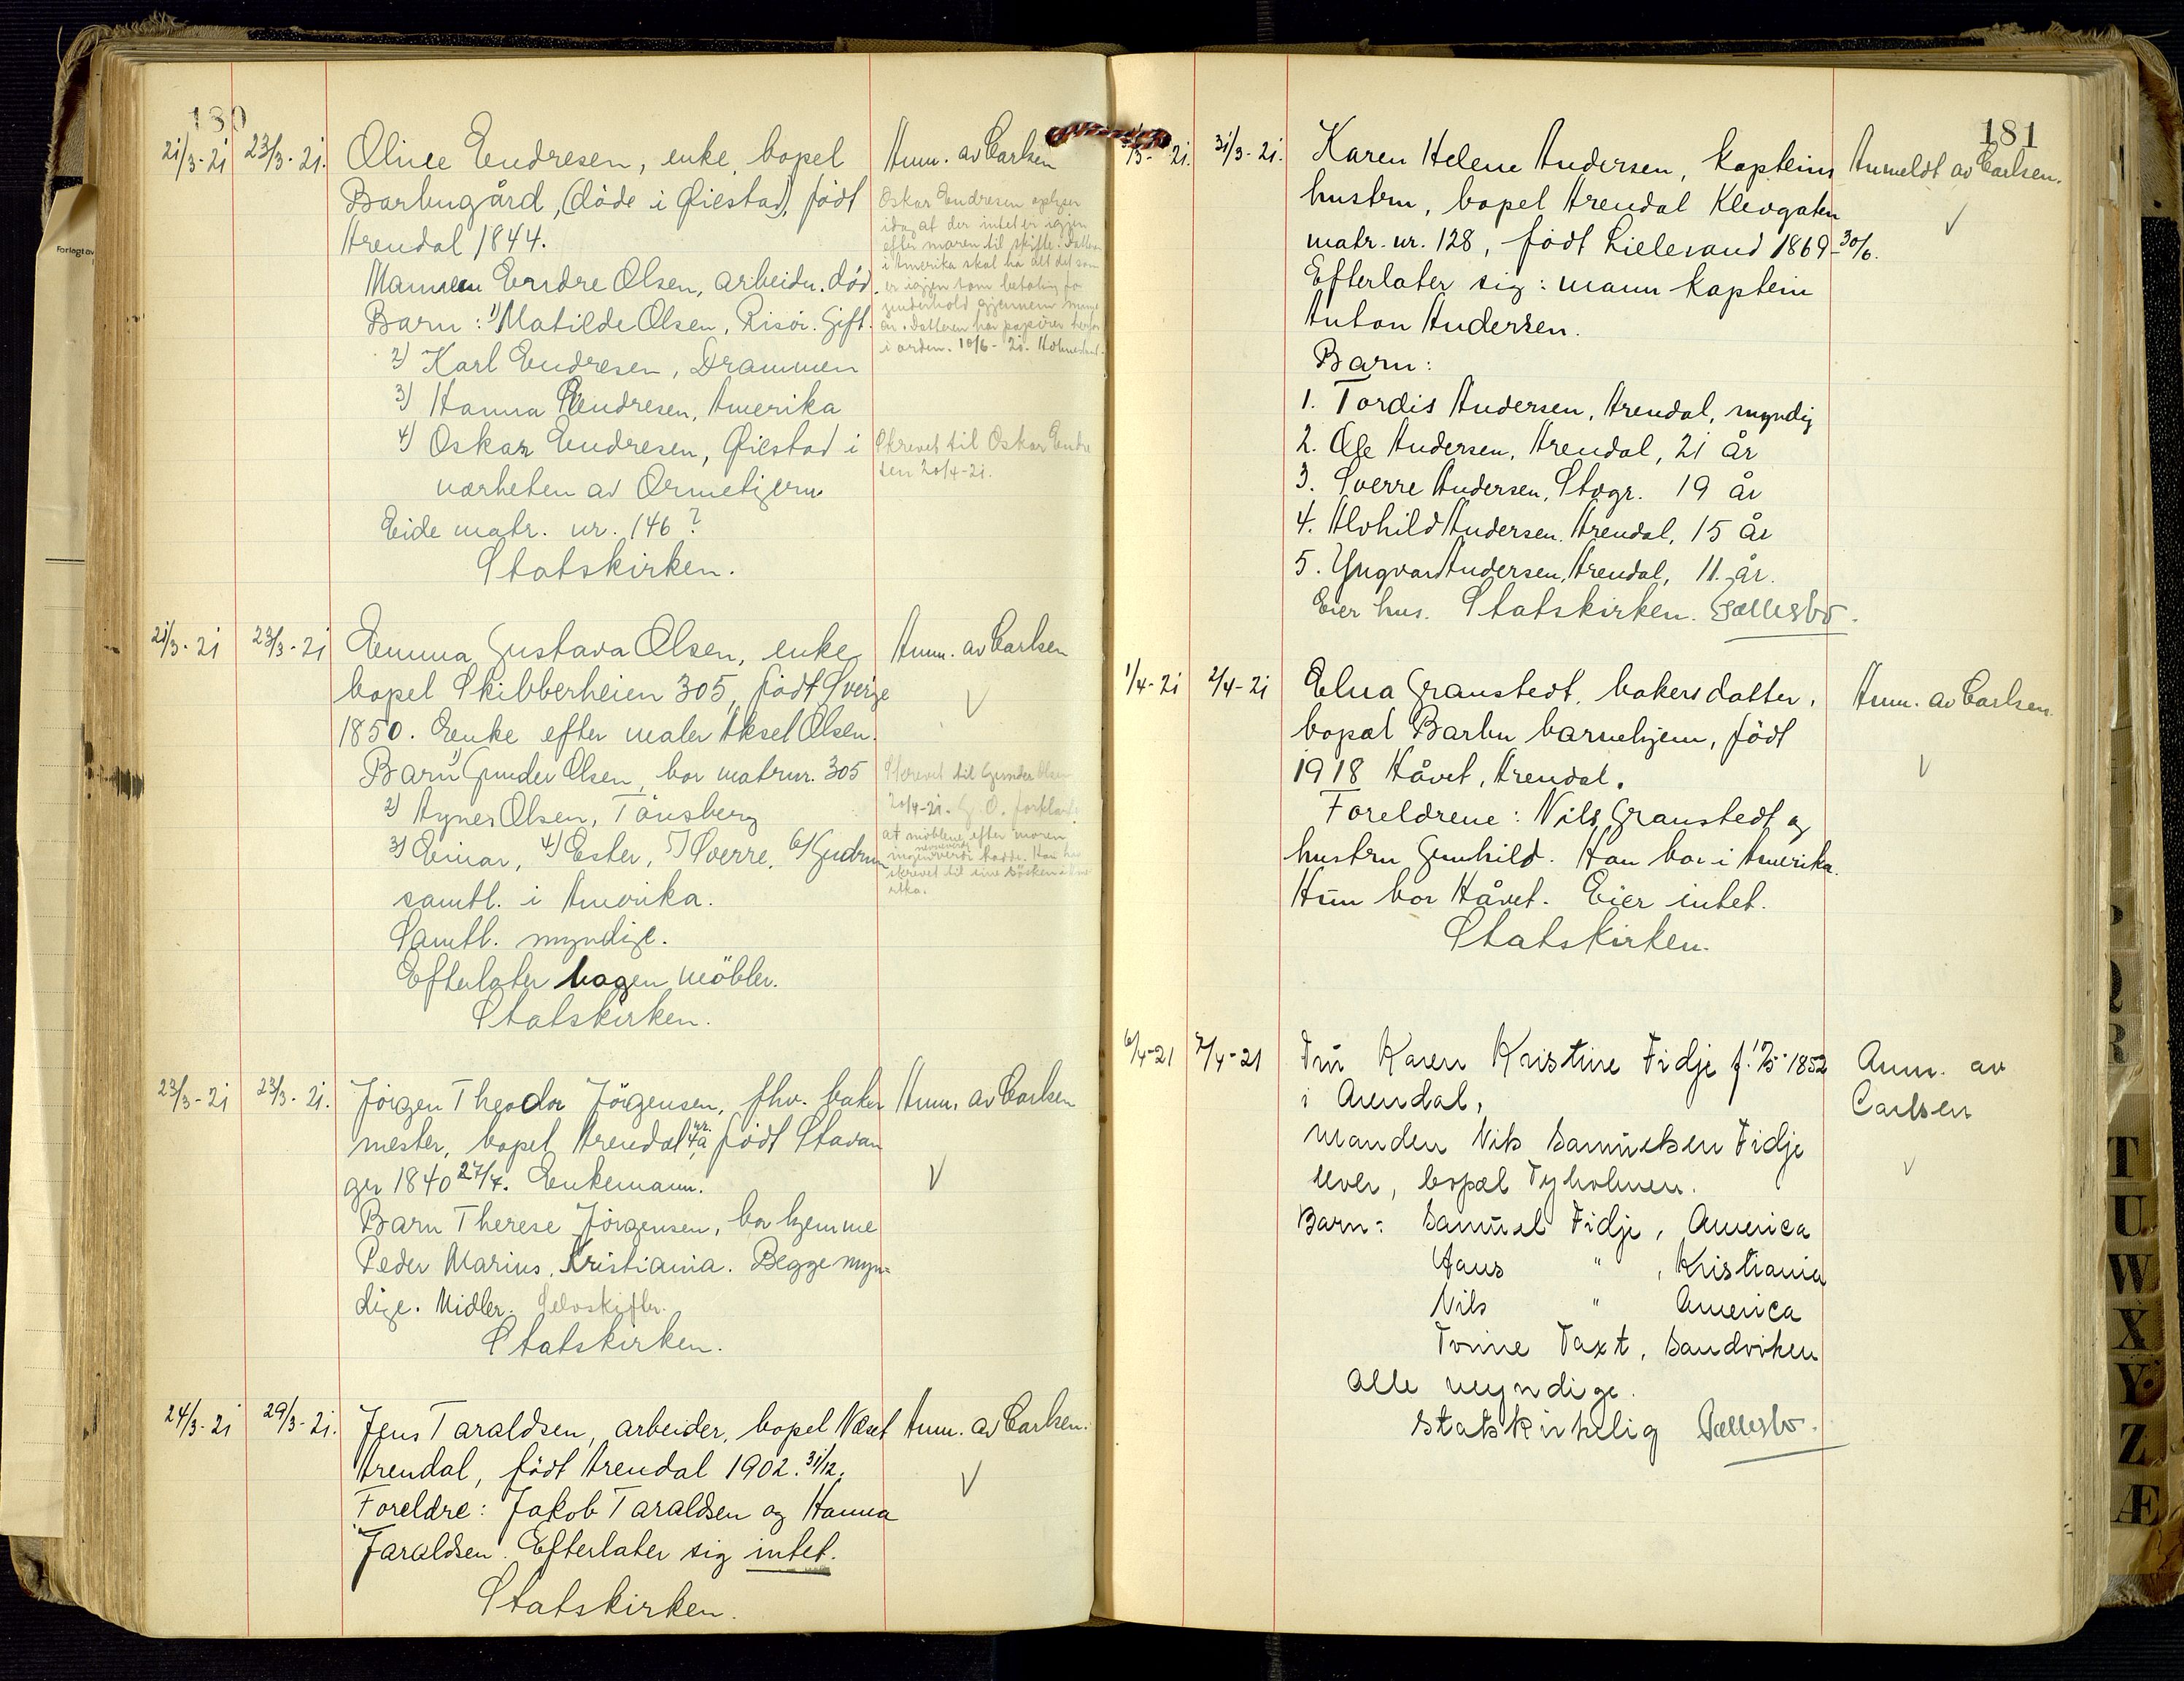 180
21/3-21 23/3-21. Oline Endresen, enke, bopel Anm. av Carlsen
Barbugård, (døde i Øiestad), født
Arendal 1844.
Mannen Endre Olsen, arbeider. død.
Barn: 1) Matilde Olsen, Risör. Gift.
2) Karl Endresen, Drammen
3) Hanna Endresen, Amerika
4) Oskar Endresen, Øiestad i
nærheten av Ormetjern.
Eide matr. nr. 146?
Statskirken.
Oskar Endresen oplyser
idag at der intet er igjen
efter moren til skifte. Datteren
i Amerika skal ha alt det som
er igjen som betaling for
underhold gjennem mange
år. Datteren har papirer herfor
i orden. 10/6-21.
Skrevet til Oskar Endre
sen 20/4-21.
21/3-21 23/3-21 Emma Gustava Olsen, enke Anm. av Carlsen
bopel Skibberheien 305, født Sverige
1850. Enke efter maler Aksel Olsen.
Barn 1) Gunder Olsen, bor matr.nr. 305
2) Agnes Olsen, Tönsberg
3) Einar, 4) Ester, 5) Sverre, 6) Gudrun
samtl. i Amerika.
Samtl. myndige.
Efterlater nogen möbler.
Statskirken.
Skrevet til Gunder Olsen
20/4-21. G. O. forklarte
at möblene efter moren
ingen nevneverdi hadde. Han har
skrevet til sine söskende i Ame
rika.
23/3-21 23/3-21. Jörgen Theodor Jörgensen, fhv. baker Anm. av Carlsen
mester, bopel Arendal nr. 4a, født Stavan
ger 1840 27/4. Enkemann.
Barn Therese Jörgensen, bor hjemme
Peder Marius, Kristiania. Begge myn-
dige. Midler. Selvskifter.
Statskirken.
24/3-21 29/3-21. Jens Taraldsen, arbeider, bopel Næset Anm. av Carlsen.
Arendal, født Arendal 1902. 31/12.
Foreldre: Jakob Taraldsen og Hanna
Taraldsen. Efterlater sig intet.
Statskirken.
181
/3-21. 31/3-21. Karen Helene Andersen, kapteins Anmeldt av Carlsen.
hustru, bopel Arendal Klevgaten
matr. nr. 128, født Lillesand 1869-30/6.
Efterlater sig: mann kaptein
Anton Andersen.
Barn:
1. Tordis Andersen, Arendal, myndig
2. Ole Andersen, Arendal, 21 år
3. Sverre Andersen, Stvgr. 19 år
4. Alvhild Andersen, Arendal, 15 år
5. Yngvar Andersen, Arendal, 11 år.
Eier hus. Statskirken. Fællesbo.
1/4-21 2/4-21 Elna Granstedt, bakers datter, Anm. av Carlsen.
bopæl Barbu barnehjem, født
1918 Håvet, Arendal.
Foreldrene: Nils Granstedt og
hustru Gunhild. Han bor i Amerika.
Hun bor Håvet. Eier intet.
Statskirken.
6/4-21 7/4-21 Fru Karen Kristine Fidje f. 17/5-1852 Anm. av
i Arendal, Carlsen
manden Nils Samuelsen Fidje
lever, bopæl Tyholmen.
Barn: Samuel Fidje, America
Hans " , Kristiania
Nils " America
Tonne Taxt, Sandviken
Alle myndige.
Statskirkelig Fællesbo.
Forlagt av
P
Q
R
T
U
W
X
Y
Z
Æ